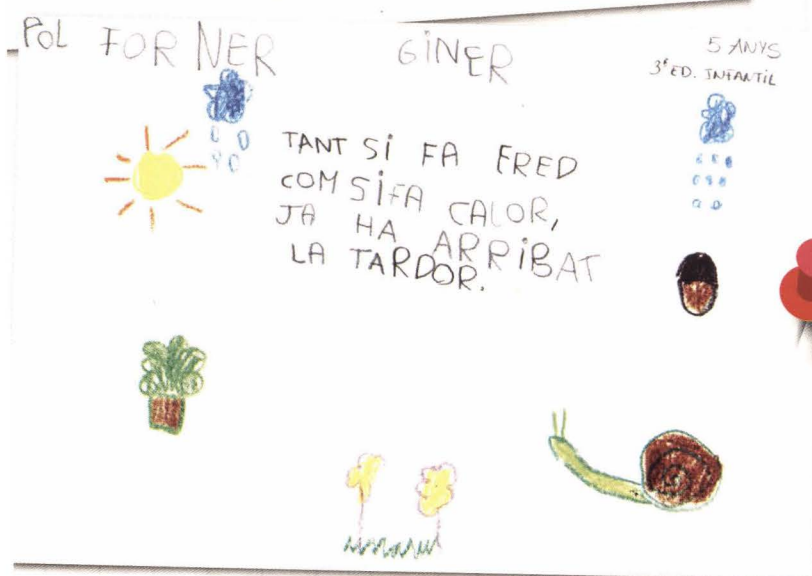 POL FORNER GINER
5 ANYS
3º ED. INFANTIL
TANT Si FA FRED
COM SiFA CALOR,
JA HA ARRiBAT
LA TARDOR.